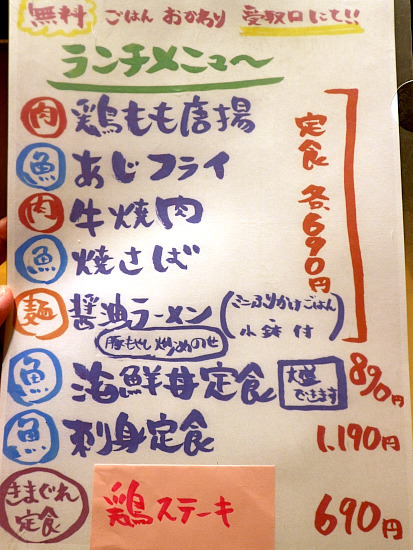 無料 ごはん おかわり 受取口にて!!
ランチメニュ〜
肉 鶏もも唐揚
魚 あじフライ
肉 牛焼肉
魚 焼さば
麺 醤油ラーメン (ミニふりかけごはん・小鉢付)
豚もやし炒めのせ
定食 各690円
魚 海鮮丼定食 大盛できます 890円
魚 刺身定食 1,190円
きまぐれ定食 鶏ステーキ 690円